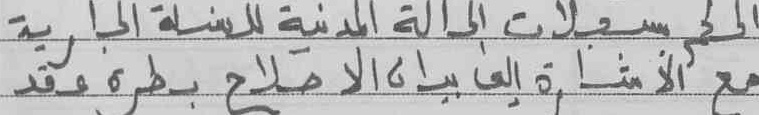 الحكم بسجلات الحالة المدنية للسنة الجارية
مع الاشارة إلى بيان الاصلاح بطرة عقد